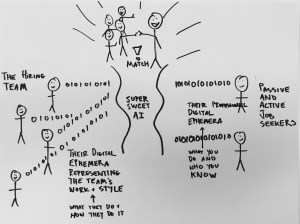 MATCH
THE HIRING
TEAM
0101010101
010101010101
SUPER
SWEET
AI
PASSIVE
AND
ACTIVE
JOB
SEEKERS
THEIR
DIGITAL
EPHEMERA
WHAT YOU
DO AND
WHO YOU
KNOW
THEIR DIGITAL
EPHEMERA
REPRESENTING
THE TEAM'S
WORK + STYLE
WHAT THEY DO +
HOW THEY DO IT